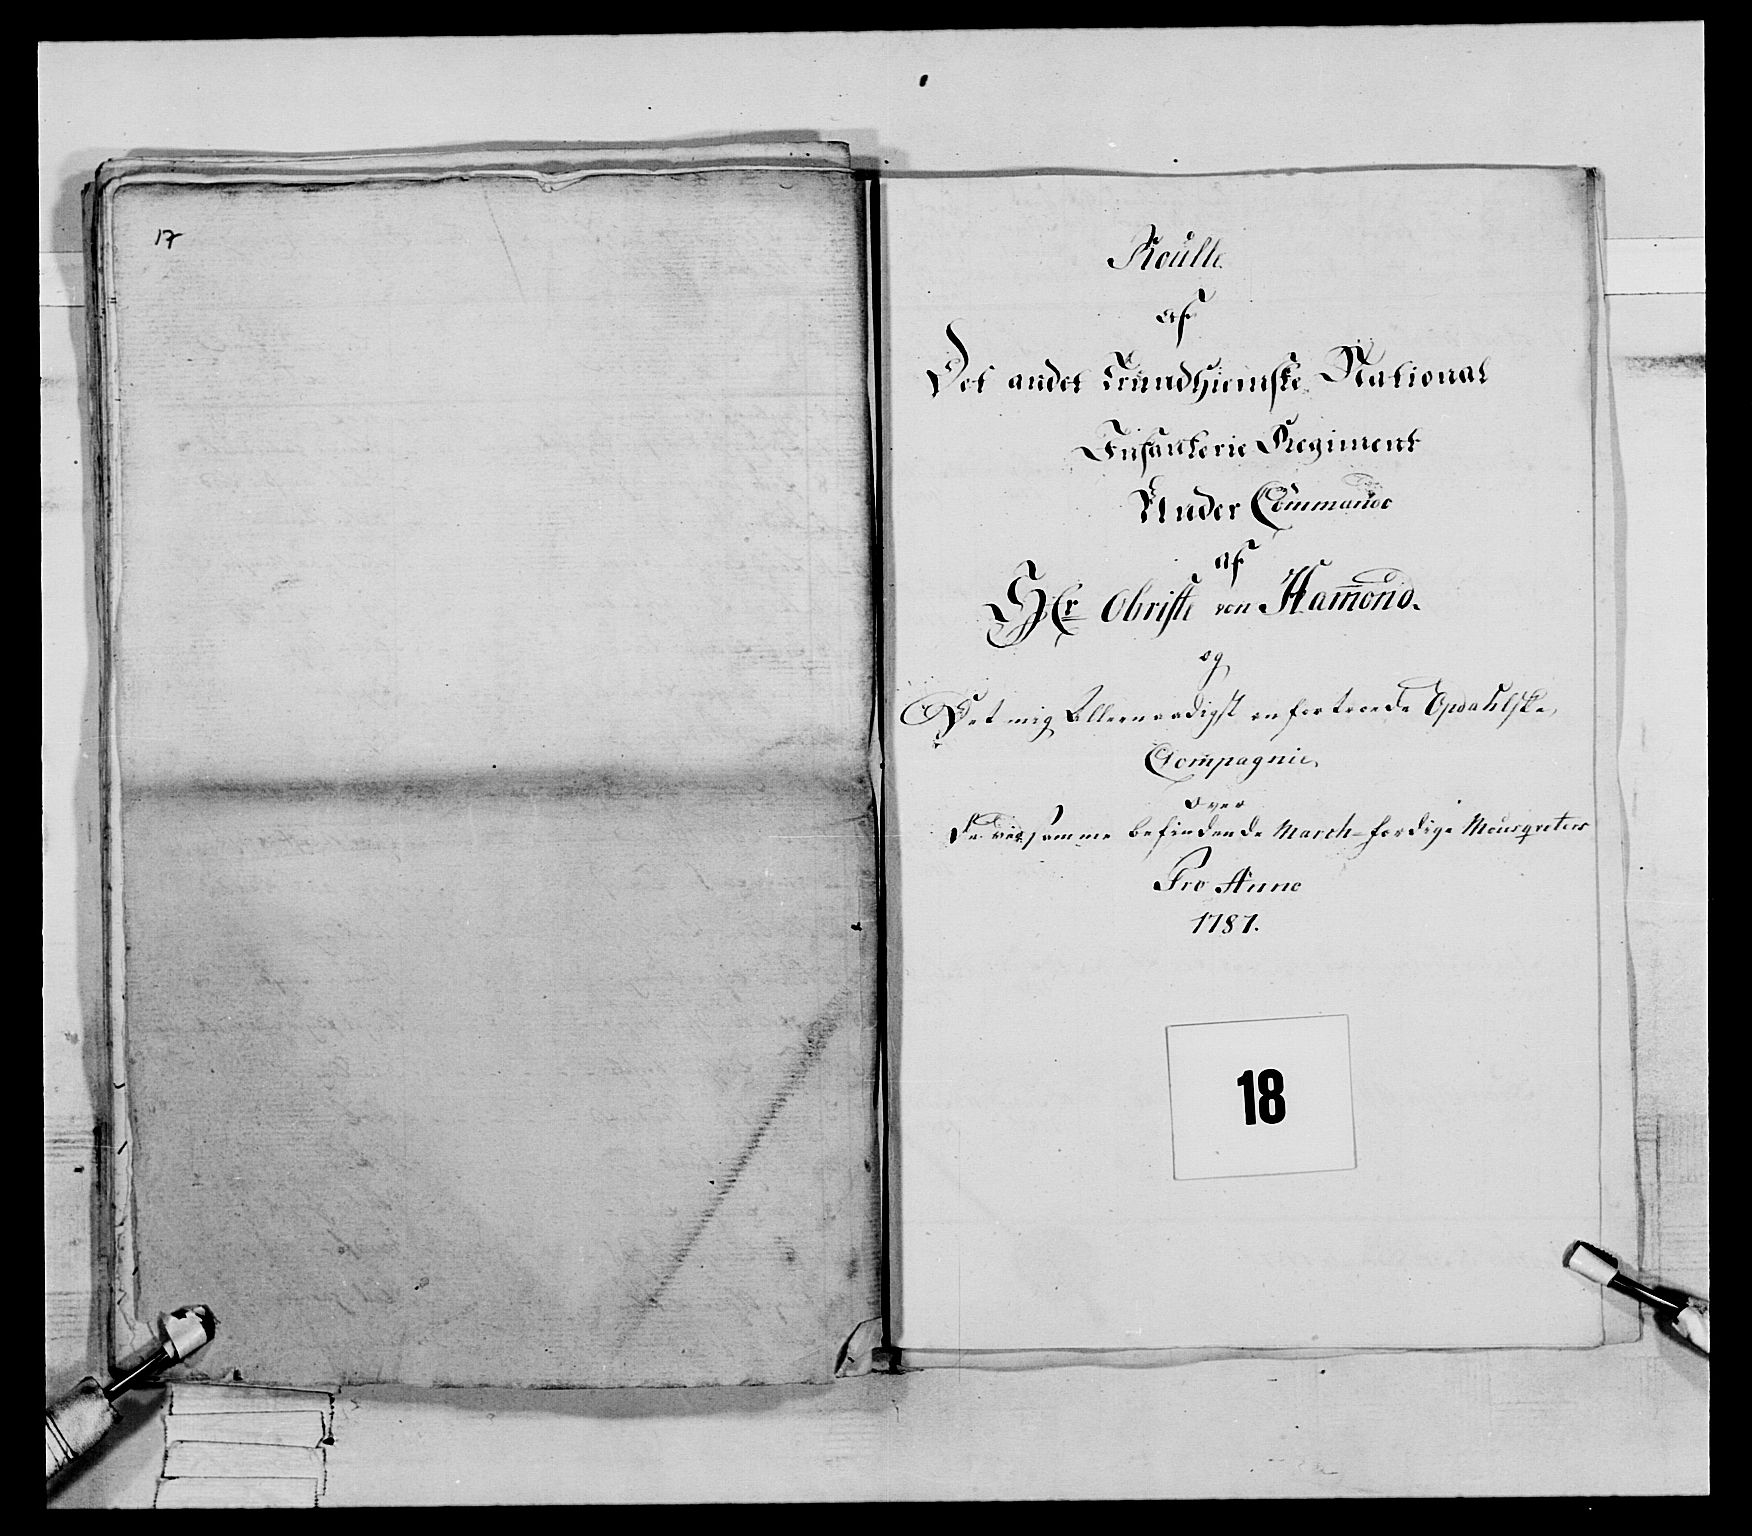 17
Roulle
af
Det andet Trundhiemske National
Infanterie Regiment
Under Commando
af
Hr Obriste von Ham̄ond.
og
Det mig Allernaadigst anfortroede Opdahlske
Com̄pagnie
over
De versamme befindende March-fordige Mousqueters
Pro Anno
1787.
18